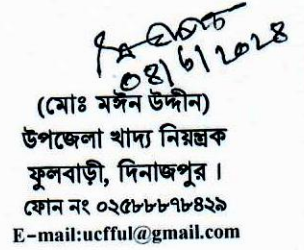 ০৪/৬/2024
(মোঃ মঈন উদ্দীন)
উপজেলা খাদ্য নিয়ন্ত্রক
ফুলবাড়ী, দিনাজপুর ।
ফোন নং ০২৫৮৮৮৭৮৪২৯
E-mail:ucfful@gmail.com